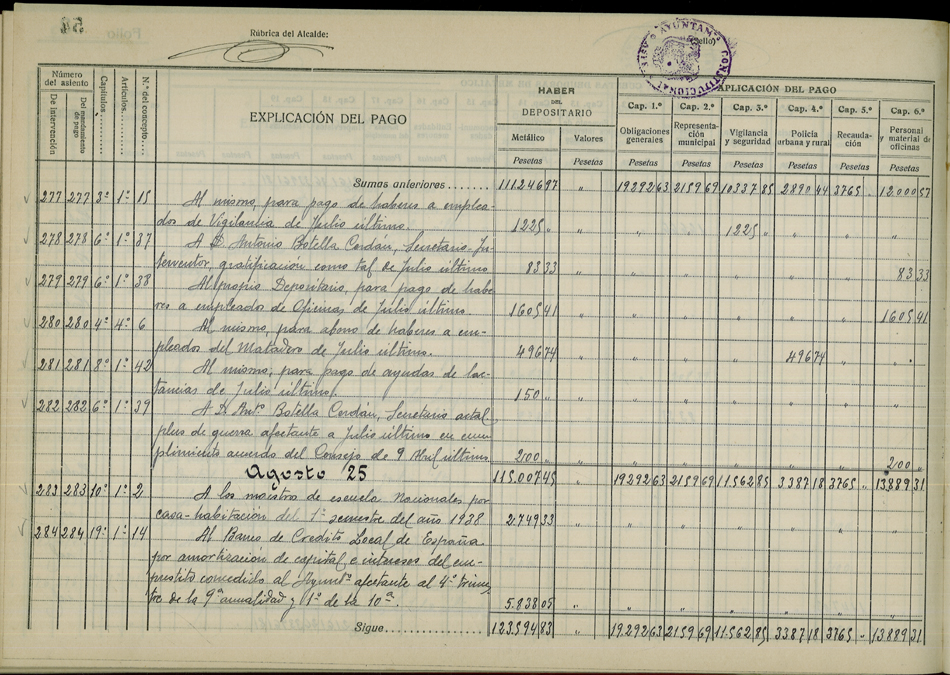 54
Rúbrica del Alcalde:
AYUNTAM CONSTITUCIONAL
(Sello)
Número del asiento
De intervención
Del mandamiento de pago
Capítulos
Artículos
N.º del concepto
EXPLICACIÓN DEL PAGO
HABER DEL DEPOSITARIO
APLICACIÓN DEL PAGO
Metálico Valores
Cap. 1.º Cap. 2.º Cap. 3.º Cap. 4.º Cap. 5.º Cap. 6.º
Obligaciones generales
Representación municipal
Vigilancia y seguridad
Policía urbana y rural
Recaudación
Personal y material de oficinas
Pesetas Pesetas Pesetas Pesetas Pesetas Pesetas Pesetas Pesetas
Sumas anteriores....... 111246 97 " 19292 63 2159 69 10337 85 2890 44 3765 " 12000 57
277 277 3º 1º 15 Al mismo, para pago de haberes a emplea-
dos de Vigilancia de Julio último. 1225 " " " " 1225 " " " "
278 278 6º 1º 37 A D. Antonio Botella Cerdán, Secretario-In-
terventor, gratificación como tal de Julio último 83 33 " " " " " " 83 33
279 279 6º 1º 38 Al propio Depositario, para pago de habe
res a empleados de Oficinas de Julio último. 1605 41 " " " " " " 1605 41
280 280 4º 4º 6 Al mismo, para abono de haberes a em-
pleados del Matadero de Julio último. 496 74 " " " " 496 74 " "
281 281 8º 1º 42 Al mismo, para pago de ayudas de lac-
tancias de Julio último. 150 " " " " " " " "
282 282 6º 1º 39 A D. Antº Botella Cerdán, Secretario actal
plus de guerra afectante a Julio último en cum
plimiento acuerdo del Consejo de 9 Abril último. 200 " " " " " " " 200 "
Agosto 25 115.007 45 19292 63 2159 69 11.562 85 3387 18 3765 " 13.889 31
283 283 10º 1º 2 A los maestros de escuela Nacionales por
casa-habitación del 1er semestre del año 1938 2.749 33 " " " " " " "
284 284 19º 1º 14 Al Banco de Crédito Local de España
por amortización de capital e intereses del em-
prestito concedido al Ayuntº afectante al 4º trimes
tre de la 9ª anualidad y 1º de la 10ª. 5.838 05 " " " " " " "
Sigue.................. 123.594 83 " 19.292 63 2159 69 11.562 85 3387 18 3765 " 13.889 31